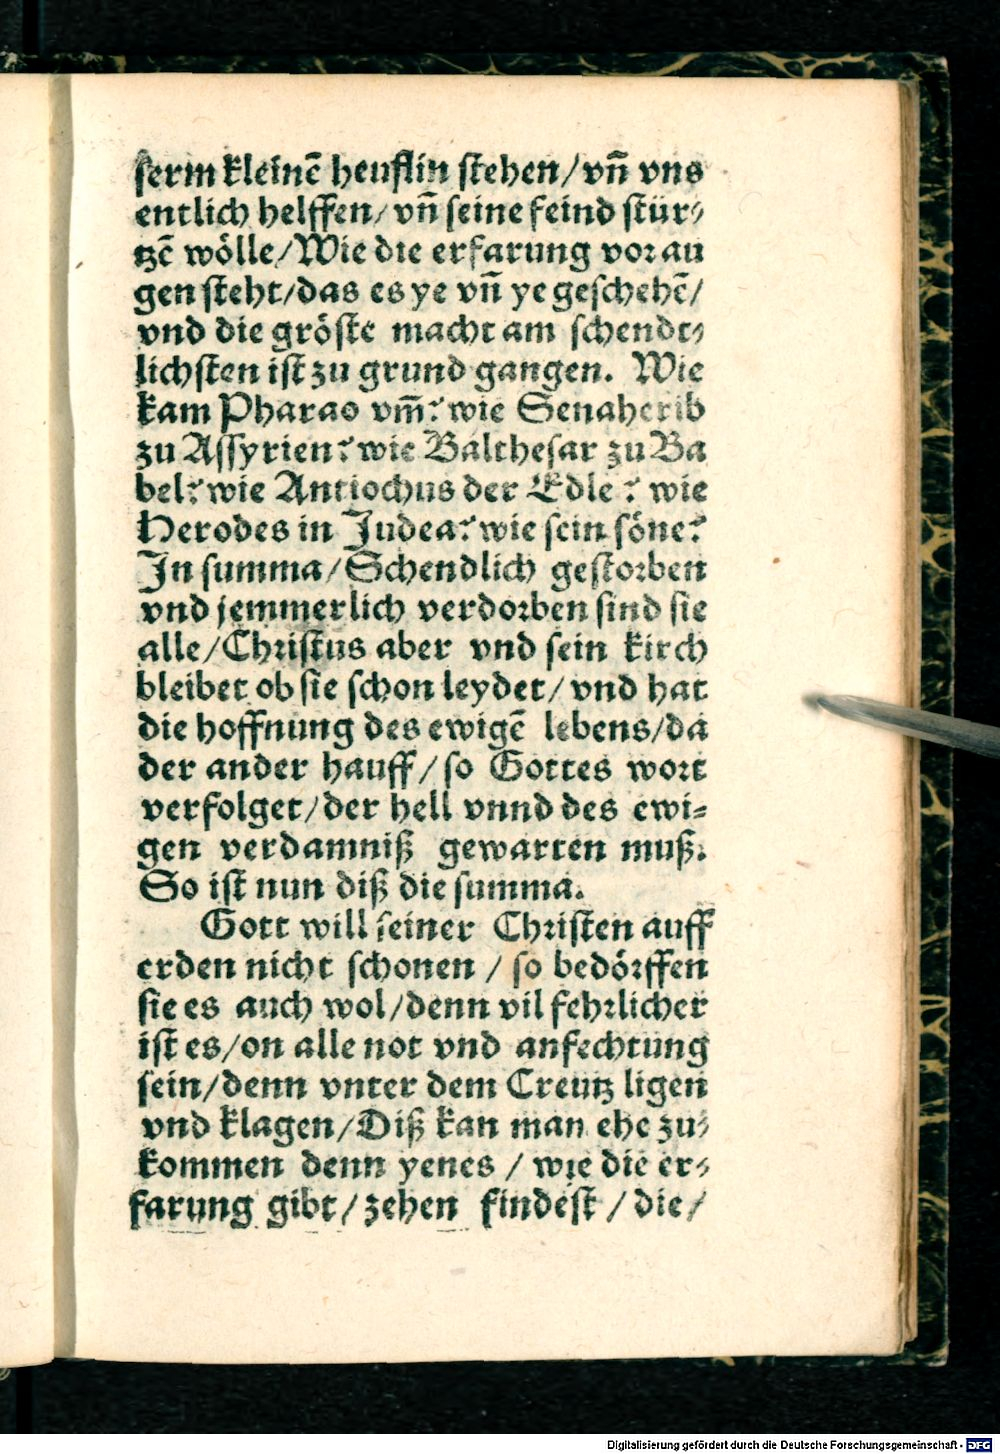 serm kleinē heuflin stehen/vñ vns
entlich helffen/vñ seine feind stür⸗
tzē wölle/Wie die erfarung vor au
gen steht/das es ye vñ ye geschehē/
vnd die gröste macht am schendt⸗
lichsten ist zu grund gangen. Wie
kam Pharao vm̄? wie Senaherib
zu Assyrien? wie Balthesar zu Ba
bel? wie Antiochus der Edle? wie
Herodes in Judea? wie sein söne?
In summa/Schendlich gestorben
vnd jemmerlich verdorben sind sie
alle/Christus aber vnd sein kirch
bleibet ob sie schon leydet/vnd hat
die hoffnung des ewigē lebens/da
der ander hauff/so Gottes wort
verfolget/der hell vnnd des ewi⸗
gen verdamniß gewarten muß.
So ist nun diß die summa.
Gott will seiner Christen auff
erden nicht schonen/so bedörffen
sie es auch wol/denn vil fehrlicher
ist es/on alle not vnd anfechtung
sein/denn vnter dem Creutz ligen
vnd klagen/Diß kan man ehe zu⸗
kommen denn yenes/wie die er⸗
farung gibt/zehen findest/die/
Digitalisierung gefördert durch die Deutsche Forschungsgemeinschaft - DFG